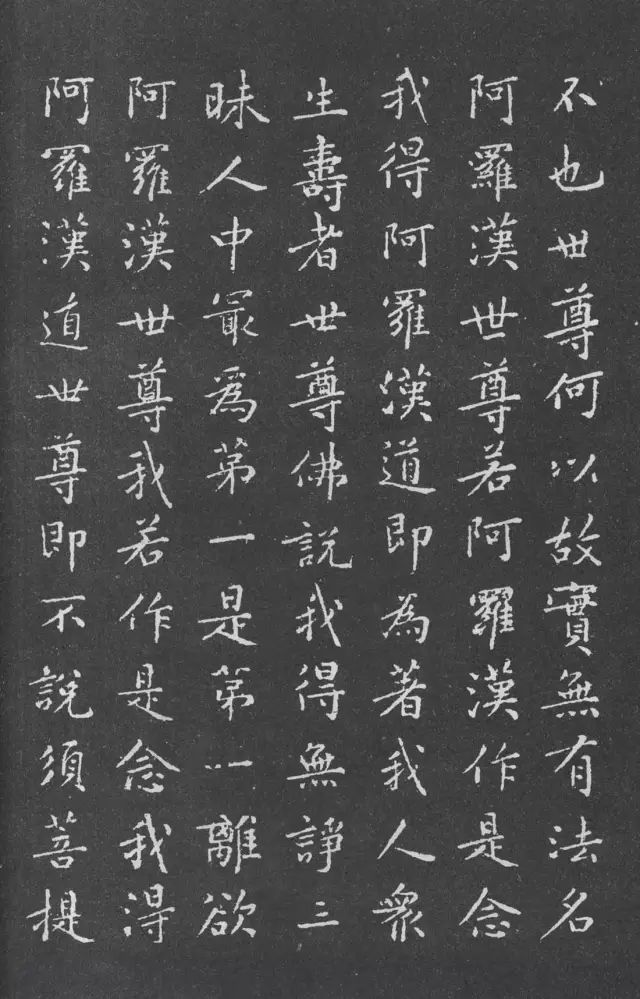 不也世尊何以故實無有法名
阿羅漢世尊若阿羅漢作是念
我得阿羅漢道即為著我人眾
生壽者世尊佛說我得無諍三
昧人中最為第一是第一離欲
阿羅漢世尊我若作是念我得
阿羅漢道世尊即不說須菩提